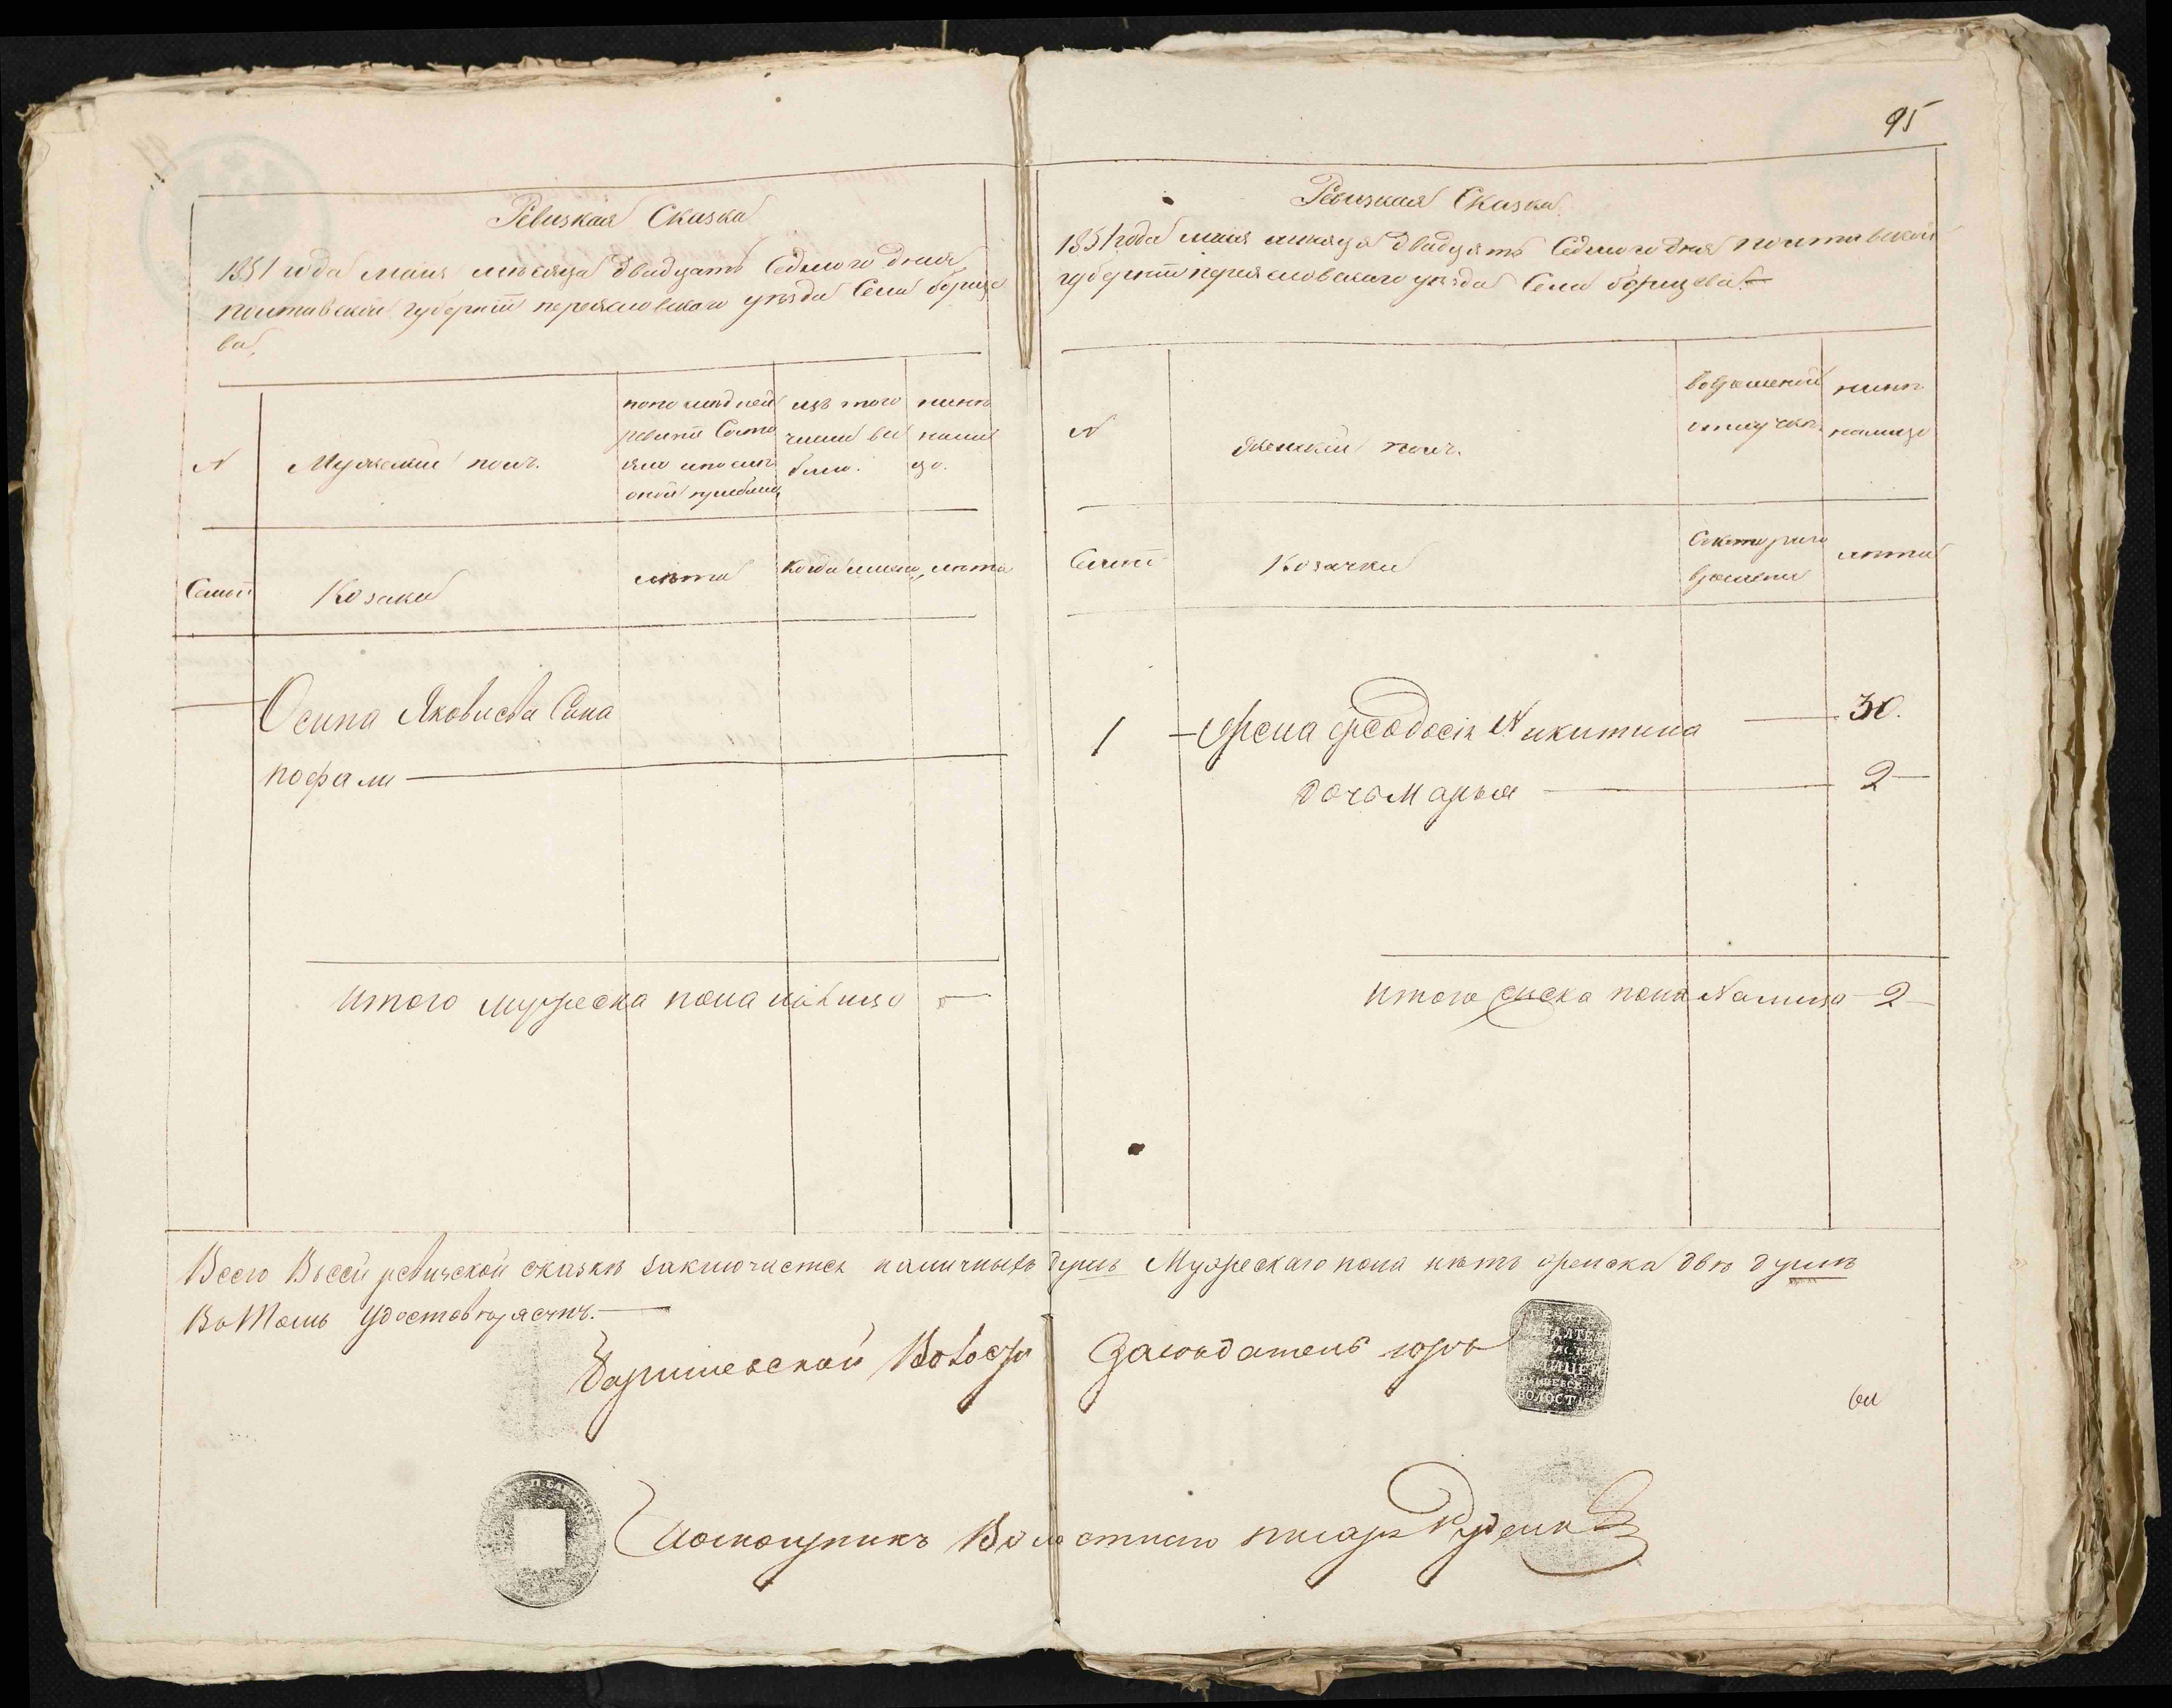 95
Ревизкая Сказка
1851 года маия месяца двадцать Седмого дня
полтавской губернии переясловского уезда Села борище
ва
N
Мужеский полъ.
по последней
ревизии Состо
яло и после
оной прибыло
изъ того
числа вы
было.
ныне
нали
цо.
Семьи
Козаки
лета
Когда именно
лета
Осипа Яковлева Сина
итого мужеска пола налицо
Ревизкая Сказка
1851 года маия месяца двадцать Седмого дня полтавской
губернии переясловского уезда Села борищева
N
Женский полъ.
во временной
отлучке
ныне
налицо
Семьи
Козачки
Скоторого
времени
лета
1 Жена Феодосія Никитина 30.
дочь Марья 2
итого женска пола налицо 2
Всего Всей ревизской сказки заключается наличныхъ душъ Мужескаго пола нетъ женска две души
ВоТомъ Удостоверяетъ.
Заседатель
ВОЛОСТИ
помощникъ Волостного писаря Руденко